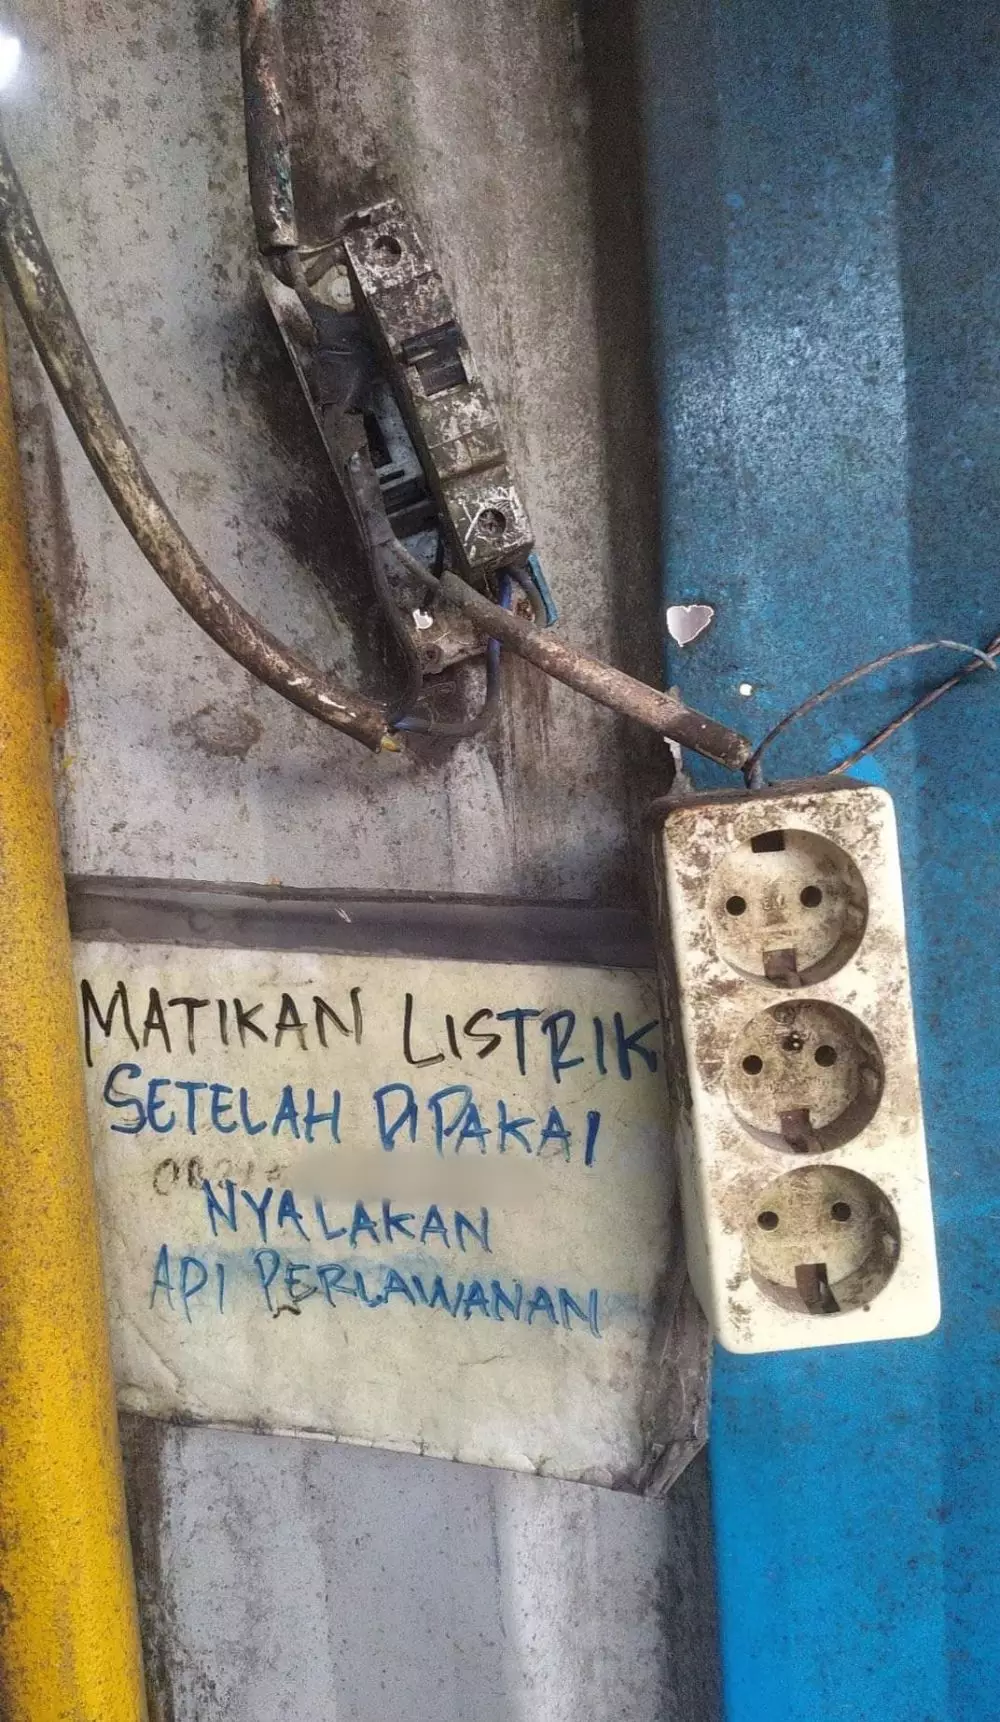 MATIKAN LISTRIK
SETELAH DIPAKAI
NYALAKAN
API PERLAWANAN